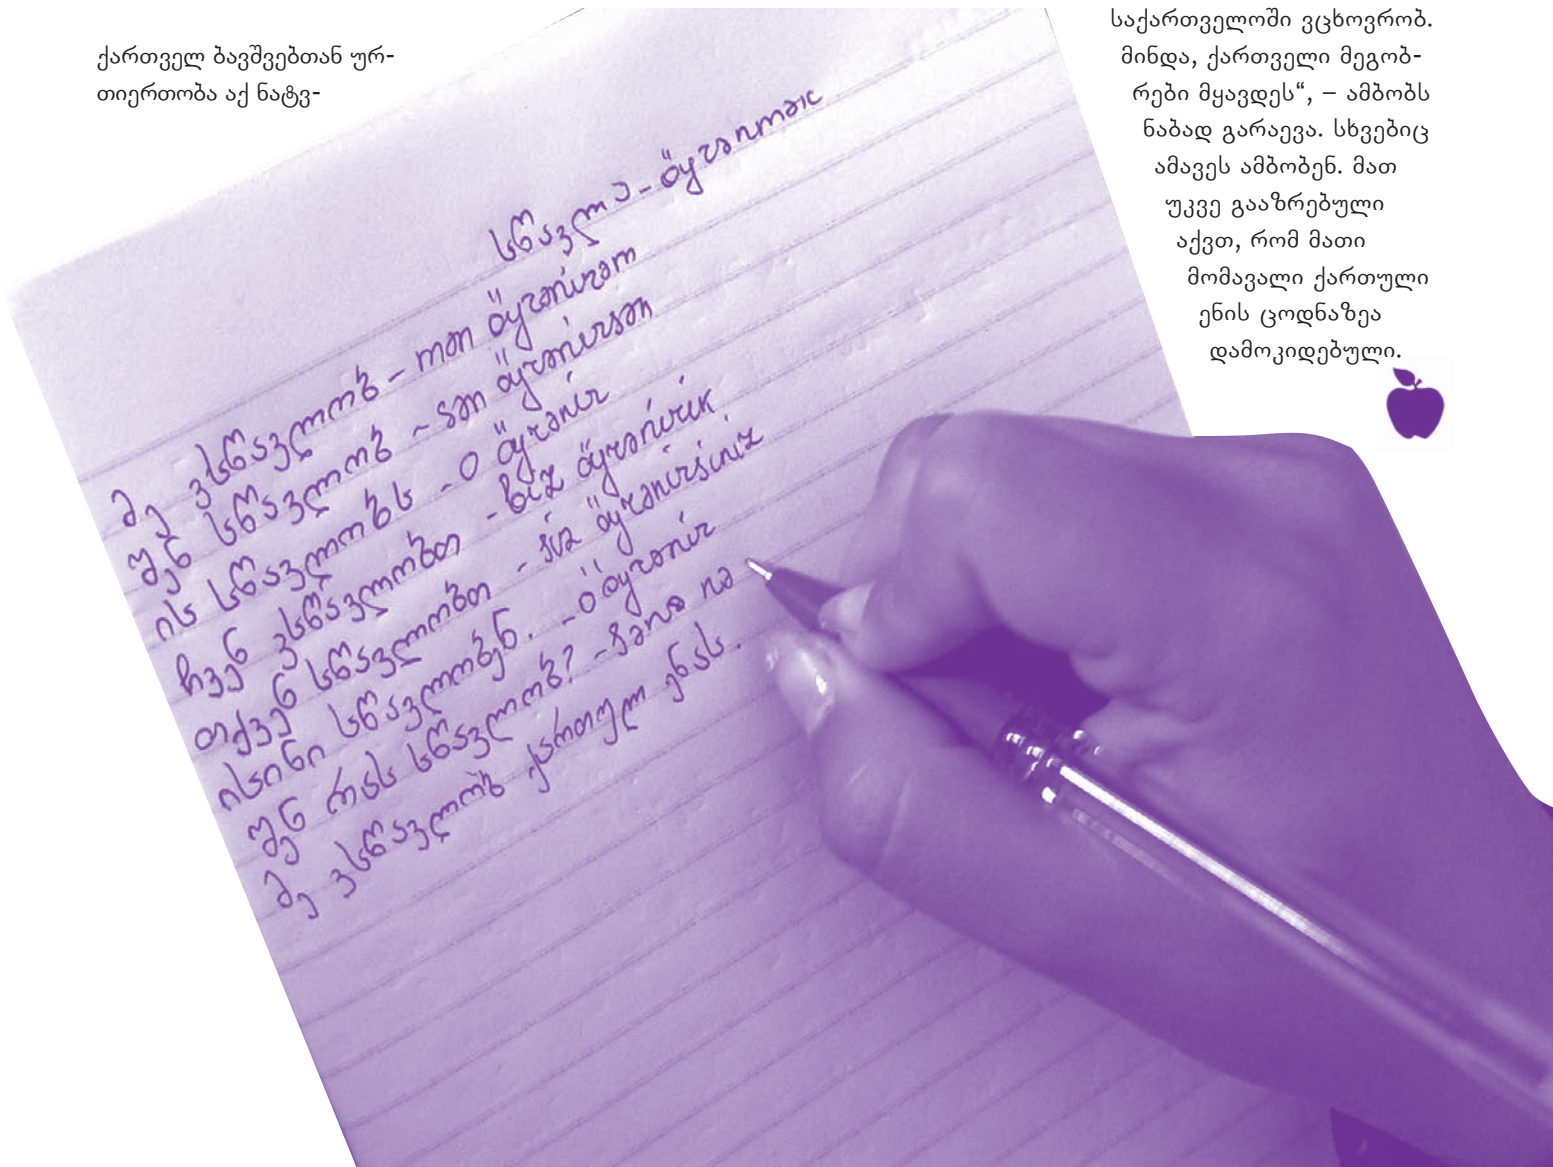 ქართველ ბავშვებთან ურ-
თიერთობა აქ ნატვ-
საქართველოში ვცხოვრობ.
მინდა, ქართველი მეგობ-
რები მყავდეს“, – ამბობს
ნაბად გარაევა. სხვებიც
ამავეს ამბობენ. მათ
უკვე გააზრებული
აქვთ, რომ მათი
მომავალი ქართული
ენის ცოდნაზეა
დამოკიდებული.
სწავლა - öyrənmək
მე ვსწავლობ - mən öyrənirəm
შენ სწავლობ - sən öyrənirsən
ის სწავლობს - o öyrənir
ჩვენ ვსწავლობთ - biz öyrənirik
თქვენ სწავლობთ - siz öyrənirsiniz
ისინი სწავლობენ. - öyrənir
შენ რას სწავლობ? -
მე ვსწავლობ ქართულ ენას.